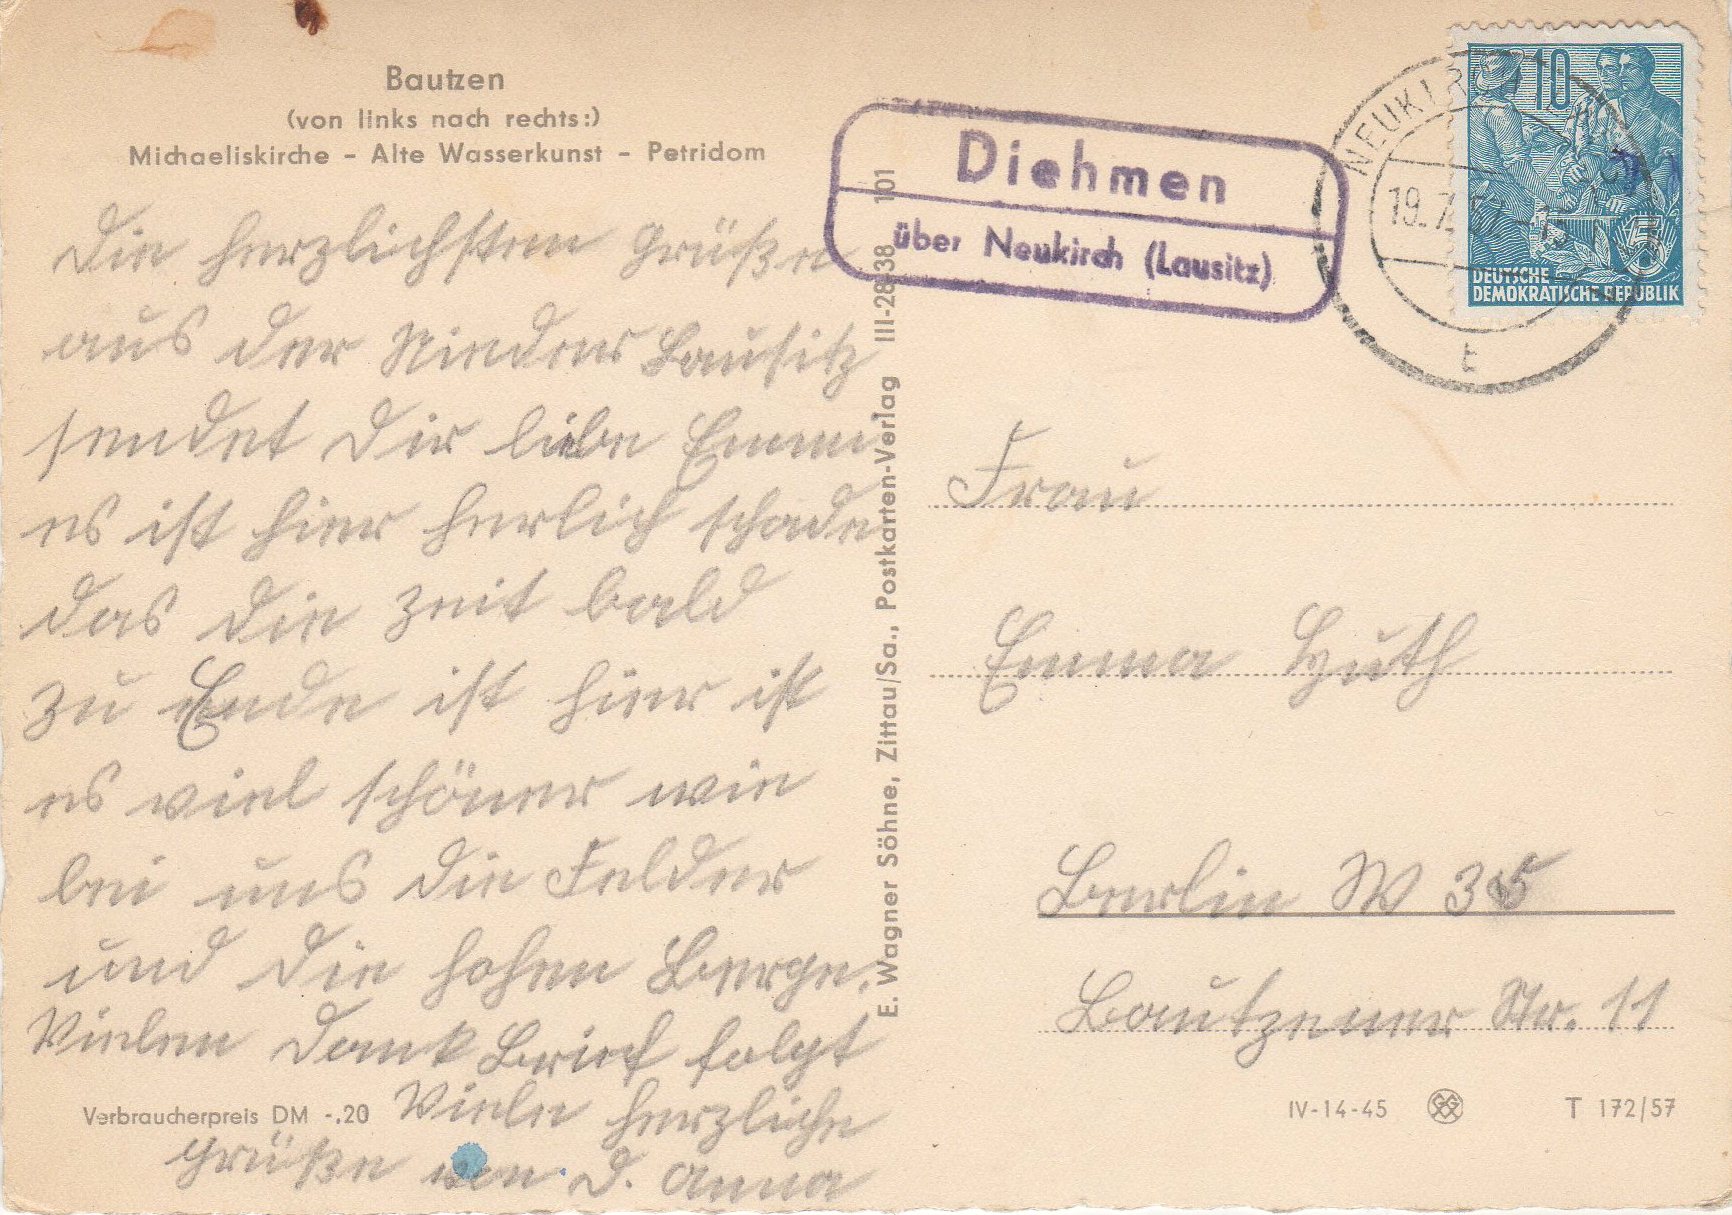 Bautzen
(von links nach rechts:)
Michaeliskirche – Alte Wasserkunst – Petridom
Die herzlichsten Grüße
aus der Nieder Lausitz
sendet Dir liebe Emma
es ist hier herlich schade
das die Zeit bald
zu Ende ist hier ist
es viel schöner wie
bei uns die Felder
und die hohen Berge.
Vielen Dank Brief folgt
Viele herzliche
Grüße von D. Anna
Verbraucherpreis DM -.20
E. Wagner Söhne, Zittau/Sa., Postkarten-Verlag III-28-38 101
Diehmen
über Neukirch (Lausitz)
NEUKIRCH
19.7.
t
10
5
DEUTSCHE
DEMOKRATISCHE REPUBLIK
Frau
Emma Huth
Berlin W 35
Bautzener Str. 11
IV-14-45
T 172/57